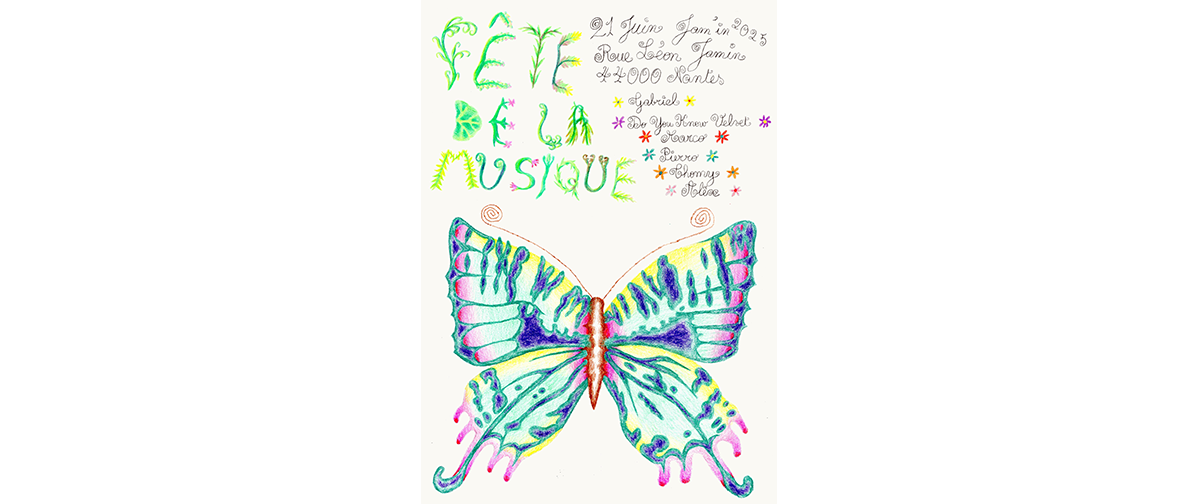 FÊTE
DE LA
MUSIQUE
21 Juin Jam'in 2025
Rue Léon Jamin
44000 Nantes
Gabriel
Do You Know Velvet
Marco
Pierro
Thomy
Alex